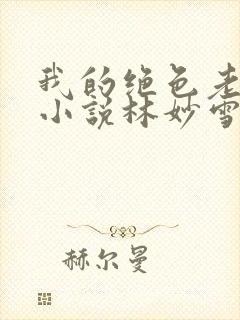 我的绝色老
小说林妙雪
赫尔曼